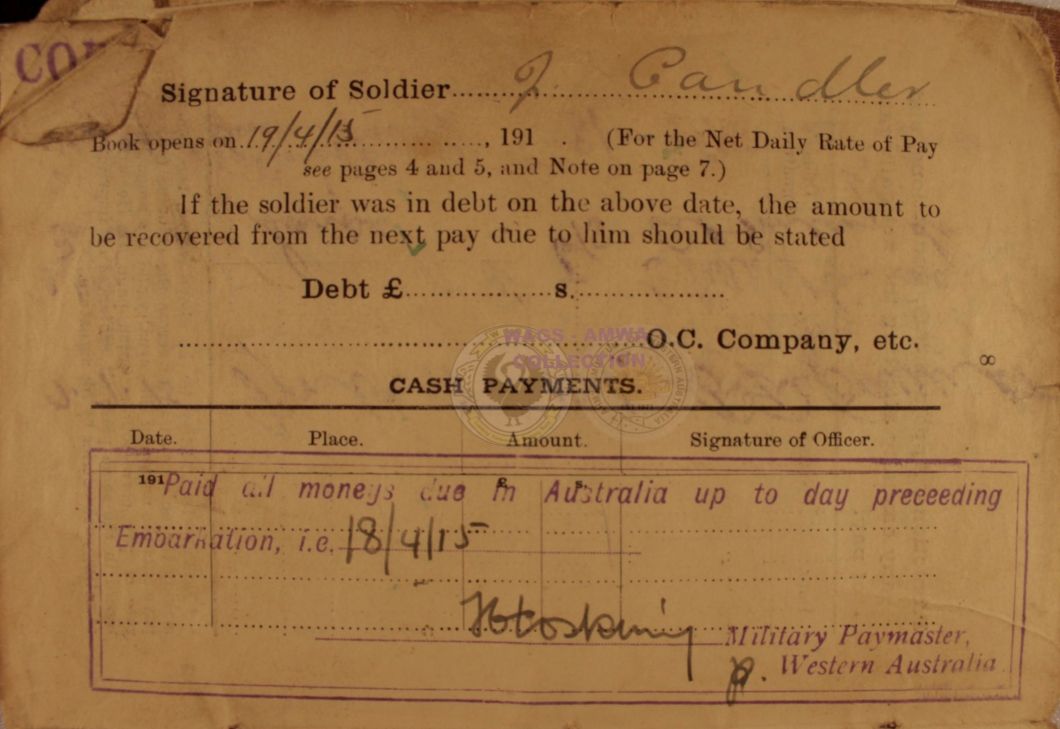 Signature of Soldier J Candler
Book opens on 19/4/15, 191 . (For the Net Daily Rate of Pay
see pages 4 and 5, and Note on page 7.)
If the soldier was in debt on the above date, the amount to
be recovered from the next pay due to him should be stated
Debt £ s.
O.C. Company, etc.
WAGS - AMWA
COLLECTION
CASH PAYMENTS.
Date. Place. Amount. Signature of Officer.
191 £ s.
Paid all moneys due in Australia up to day preceeding
Embarkation, i.e. 18/4/15
Military Paymaster,
p. Western Australia